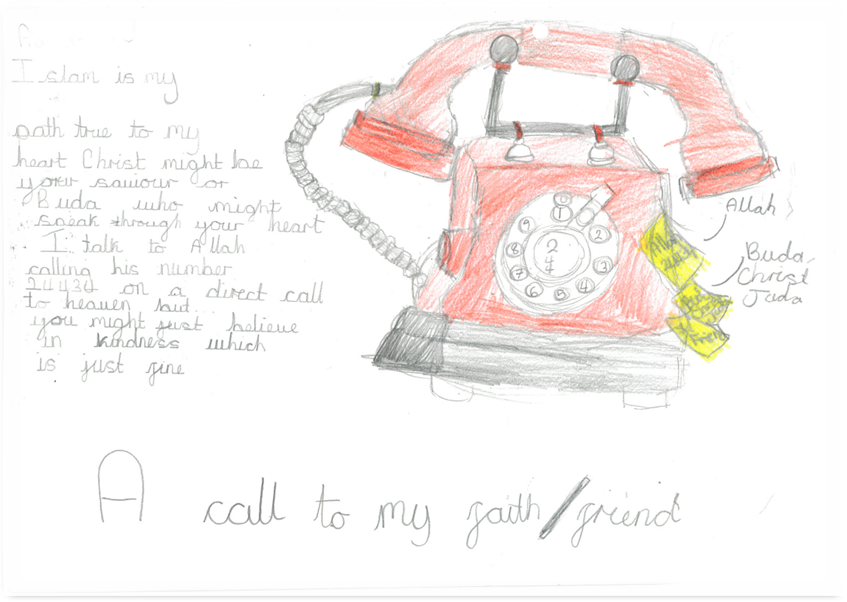 Islam is my
path true to my
heart Christ might be
your saviour or
Buda who might
speak through your heart
I talk to Allah
calling his number
24434 on a direct call
to heaven but
you might just believe
in kindness which
is just fine
1
2
3
4
5
6
7
8
9
2
4
Allah
Buda,
Christ
Juda
A call to my faith/friend